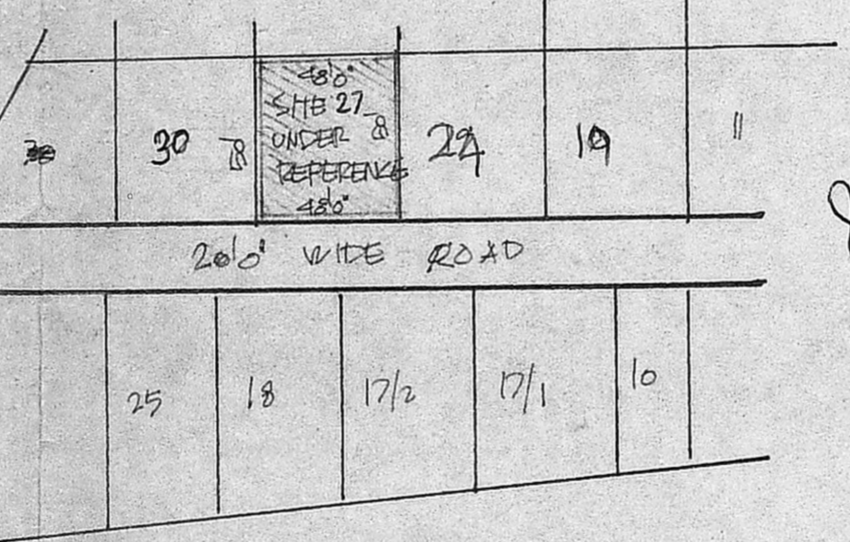 48'0"
SITE 27
UNDER
REFERENCE
48'0"
30
24
19
11
20'0" WIDE ROAD
25
18
17/2
17/1
10